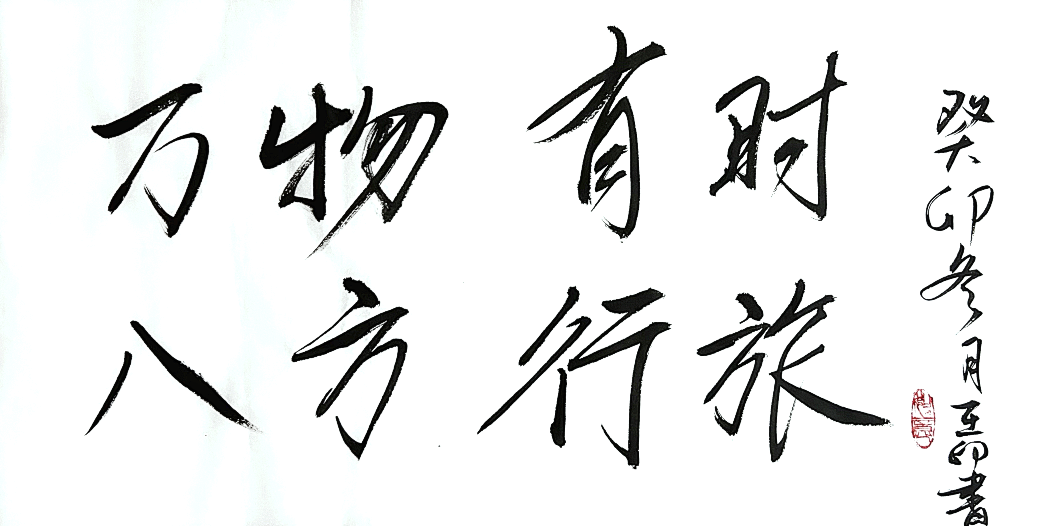 万物有时
八方行旅
癸卯冬月書